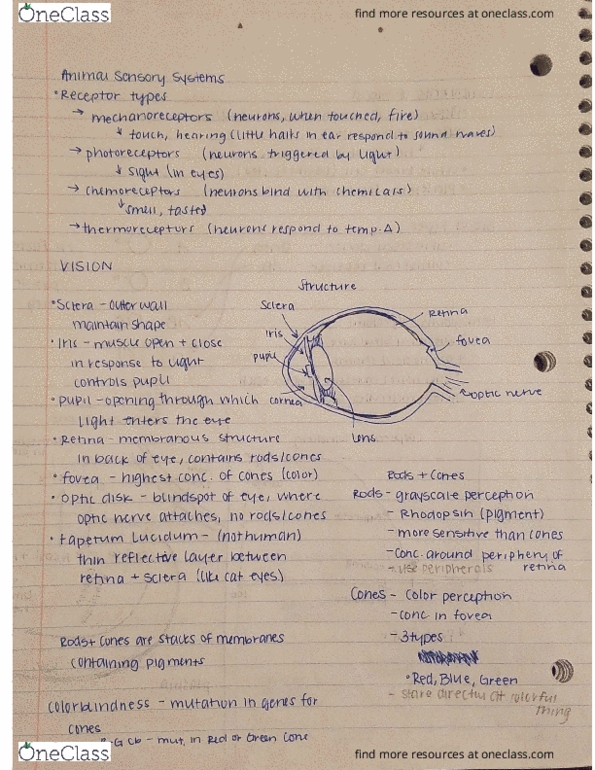 OneClass
find more resources at oneclass.com
Animal Sensory Systems
• Receptor types
→ mechanoreceptors (neurons, when touched, fire)
↳ touch, hearing (little hairs in ear respond to sound waves)
→ photoreceptors (neurons triggered by light)
↳ sight (in eyes)
→ chemoreceptors (neurons bind with chemicals)
↳ smell, tasted
→ thermoreceptors (neurons respond to temp. Δ)
VISION
Structure
• Sclera - outer wall
maintain shape
• Iris - muscle open + close
in response to light
controls pupil
• Pupil - opening through which
light enters the eye
• Retina - membranous structure
in back of eye, contains rods/cones
• fovea - highest conc. of cones (color)
• optic disk - blindspot of eye, where
optic nerve attaches, no rods/cones
• tapetum lucidum - (not human)
thin reflective layer between
retina + sclera (like cat eyes)
Sclera
Iris
pupil
cornea
lens
Retina
fovea
optic nerve
Rods + Cones
Rods - grayscale perception
- Rhodopsin (pigment)
- more sensitive than cones
- conc. around periphery of
retina
- use peripherals
Cones - color perception
- conc in fovea
- 3 types
• Red, Blue, Green
- stare directly at colorful
thing
Rods + cones are stacks of membranes
containing pigments
colorblindness - mutation in genes for
cones
-G cb - mut. in Red or Green cone
OneClass
find more resources at oneclass.com